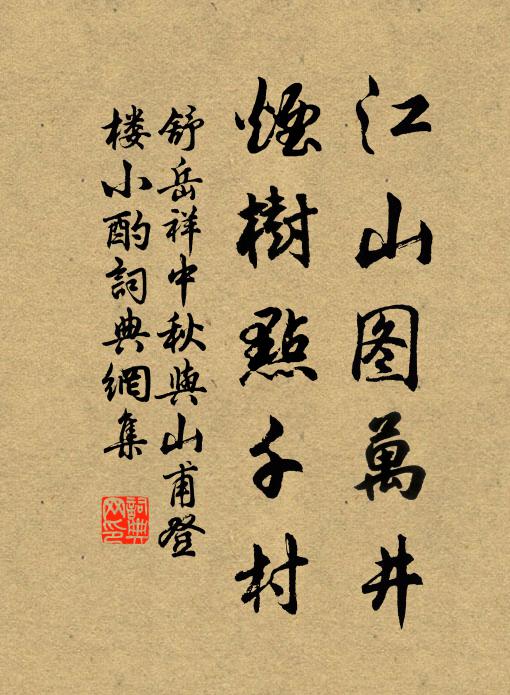 江山图萬井
煙樹點千村
舒岳祥中秋與山甫登
楼小酌詞典網集
詞典
网印